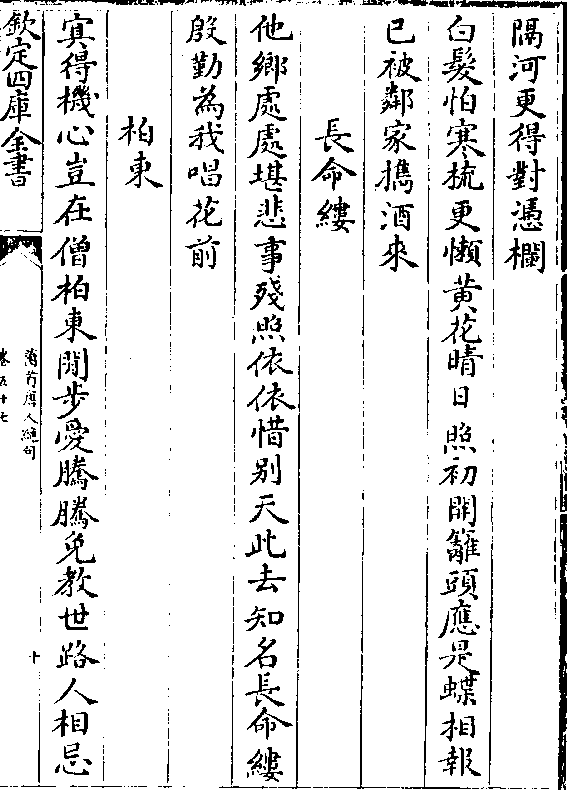 隔河更得對憑欄
白髮怕寒梳更懶黄花晴日照初開籬頭應是蝶相報
已被鄰家擕酒來
長命縷
他鄉處處堪悲事殘照依依惜别天此去知名長命縷
殷勤為我唱花前
柏東
㝠得機心豈在僧柏東閒步愛騰騰免教世路人相忌
欽定四庫全書
萬首唐人絶句
卷五十七
十